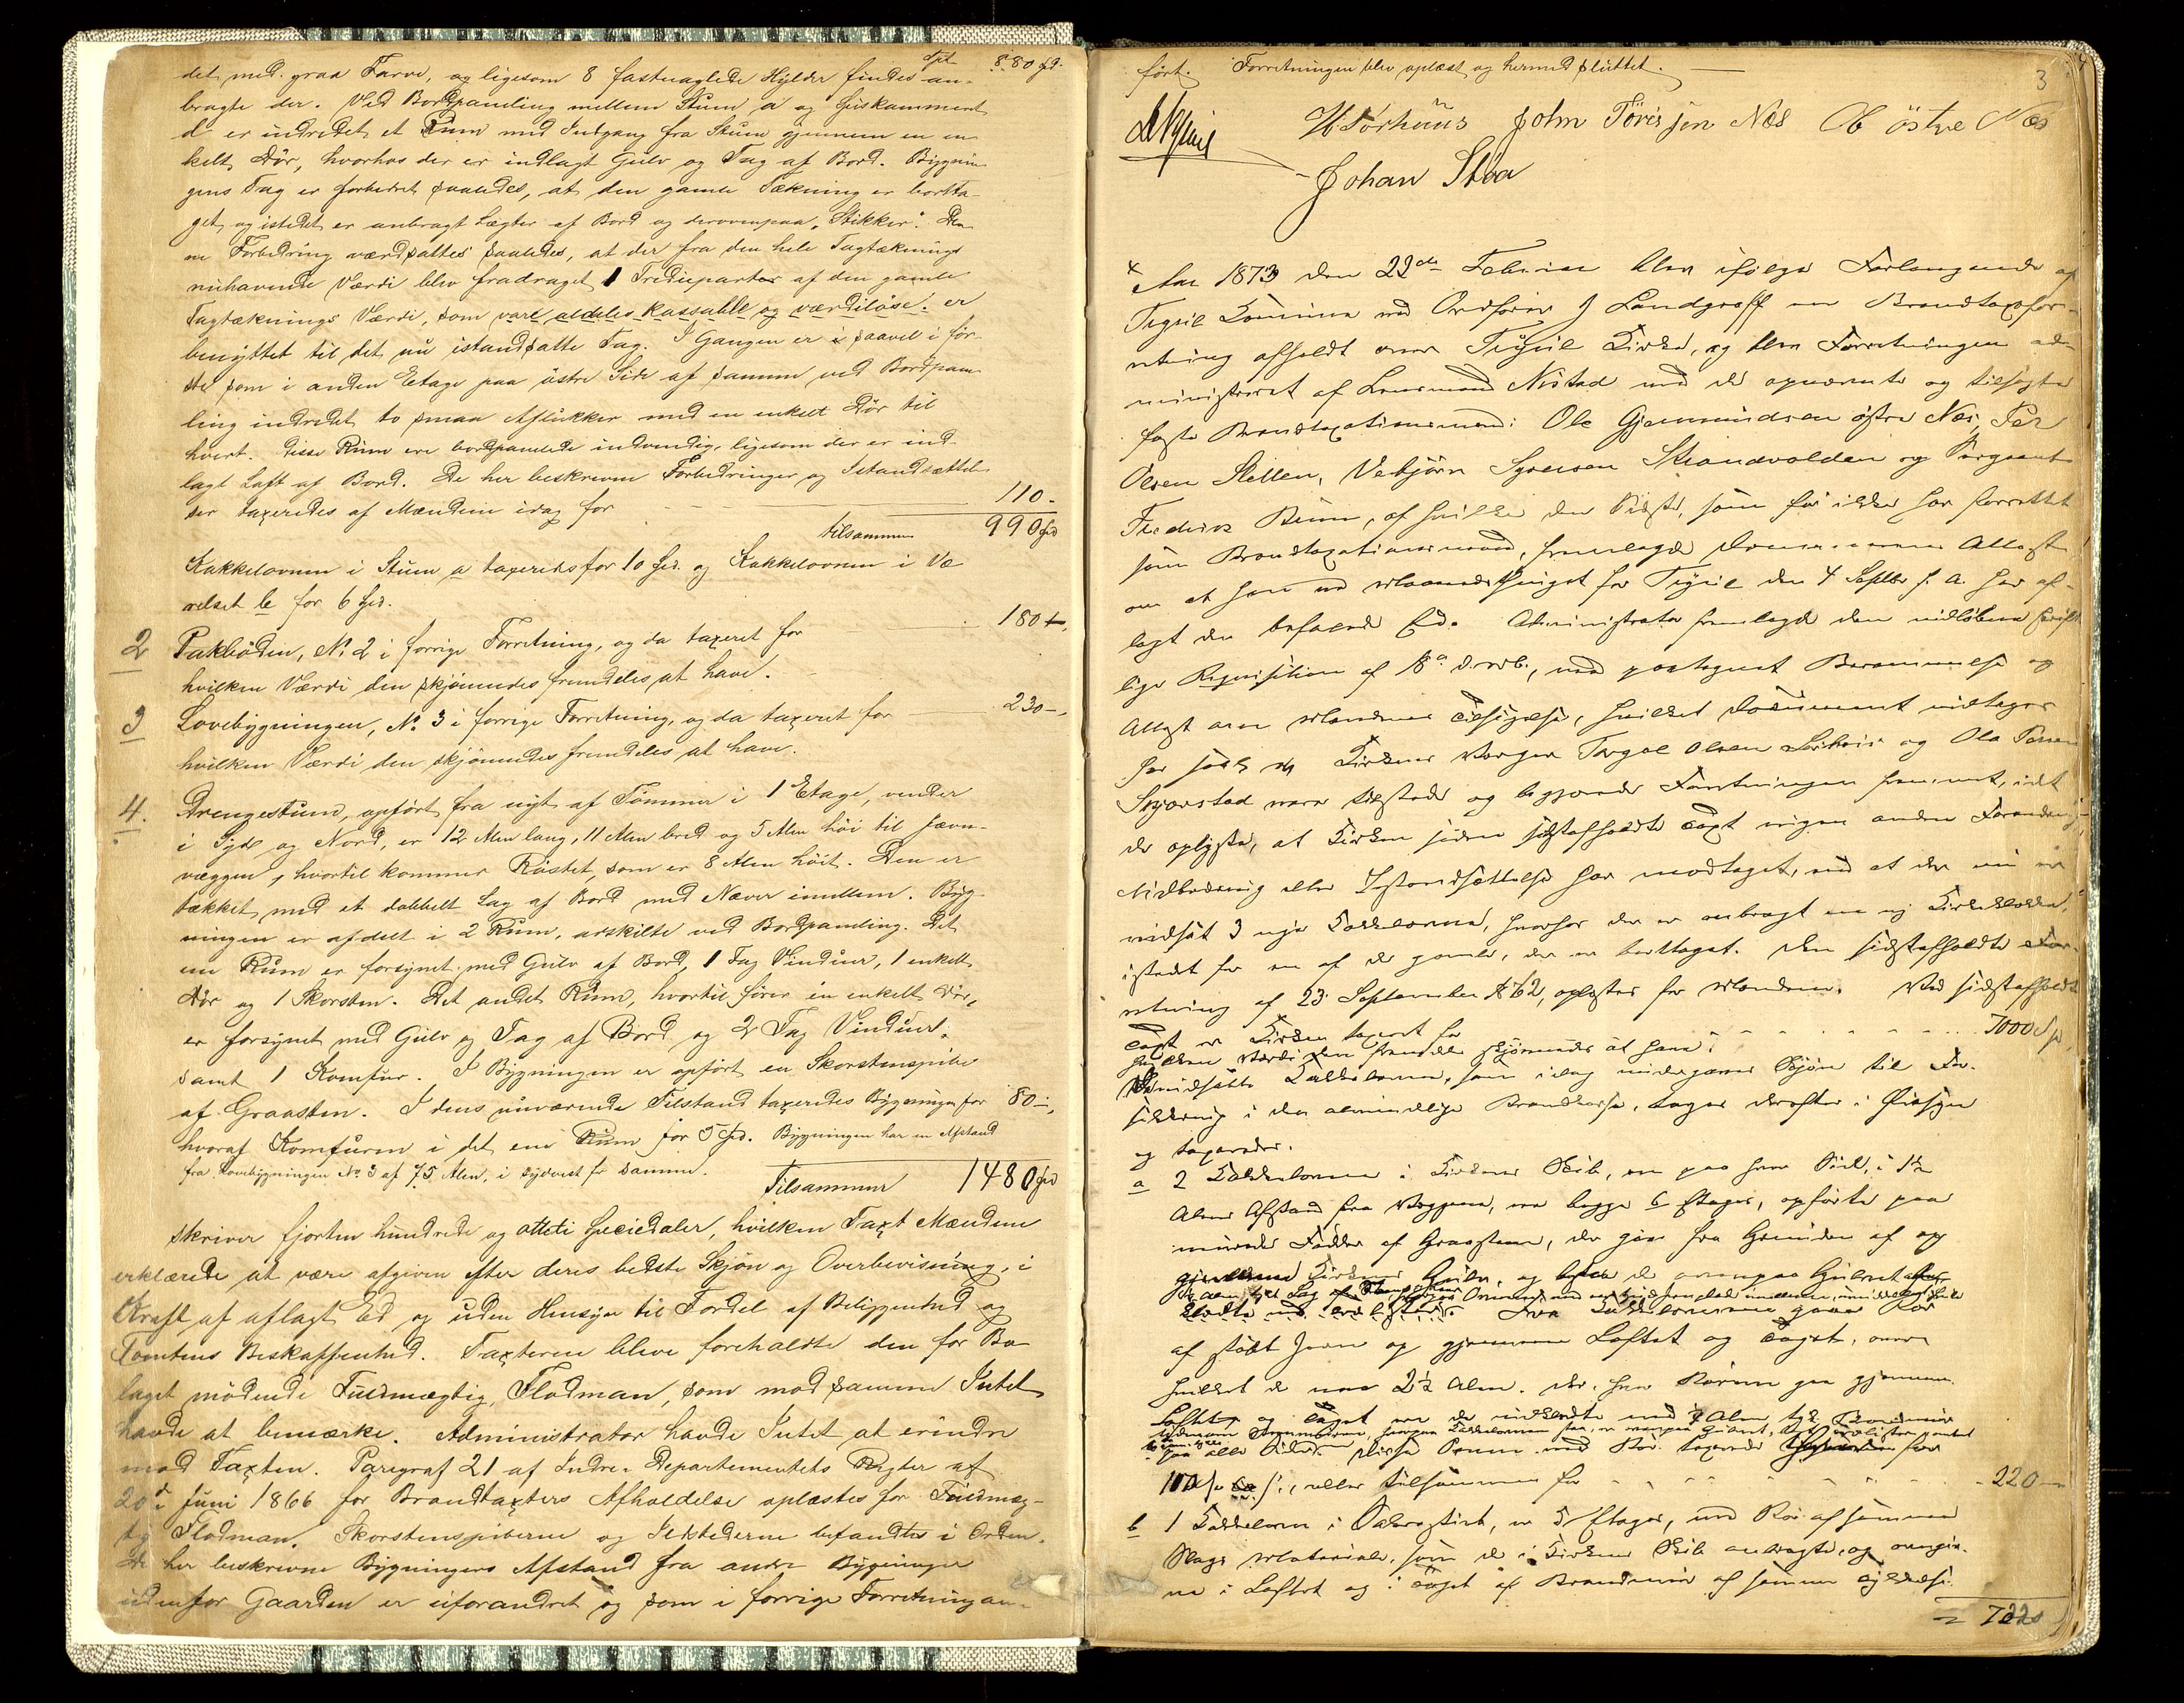 det med graa Farve, og ligesom 8 fastnaglede Hylder findes an-
dpt. 880 spd.
bragte der. Ved Bordpanling mellem Stuen a og Huskammeret
d er indredet et Rum med Indgang fra Stuen gjennem en en-
kelt Dör, hvorhos der er indlagt Gulv og Tag af Bord. Bygnin-
gens Tag er forbedret saaledes, at den gamle Tækning er bortta-
get, og istedet er anbragt Lægter af Bord og derovenpaa "Stikker". Den-
ne Forbedring værdsattes saaledes, at der fra den hele Tagtæknings
nuhavende Værdi blev fradraget 1 Trediepart af den gamle
Tagtæknings Værdi, som var aldeles kassabel og værdilöse: er
benyttet til det nu istandsatte Tag. I Gangen er saavel i för-
ste som i anden Etage paa östre Side af samme ved Bordpan-
ling indredet to smaa Aflukker med en enkelt Dör til
hvert. Disse Rum ere bordpanlede indvendig, ligesom der er ind-
lagt Loft af Bord. De her beskrevne Forbedringer og Istandsættel-
ser taxeredes af Mændene idag for 110 -
tilsammen 990 spd
Kakkelovnen i Stuen a taxeredes for 10 spd. og Kakkelovnen i Væ-
relset b for 6 spd.
2 Pakboden, No. 2 i forrige Forretning, og da taxeret for 180 -
hvilken Værdi den skjönnedes fremdeles at have.
3 Lovebygningen, No. 3 i forrige Forretning, og da taxeret for 230 -
hvilken Værdi den skjönnedes fremdeles at have.
4. Drengestuen, opfört fra nyt af Tömmer i 1 Etage, vender
i Syd og Nord, er 12 Alen lang, 11 Alen bred og 5 Alen höi til Jævn-
væggen, hvortil kommer Röstet, som er 8 Alen höit. Den er
tækket med et dobbelt Lag af Bord med Næver imellem. Byg-
ningen er afdelt i 2 Rum, adskilte ved Bordpanling. Det
ene Rum er forsynet med Gulv af Bord, 1 Fag Vinduer, 1 enkelt
Dör og 1 Skorsten. Det andet Rum, hvortil förer en enkelt Dör,
er forsynet med Gulv og Tag af Bord og 2 Fag Vinduer,
samt 1 Komfur. I Bygningen er opfört en Skorstenspibe
af Graasten. I dens nuværende Tilstand taxeredes Bygningen for 80 -
hvoraf Komfuren i det ene Rum for 5 spd. Bygningen har en Afstand
fra Lovebygningen No 3 af 75 Alen, i Sydvest for samme.
Tilsammen 1480 spd
skriver fjorten hundrede og otteti Speciedaler, hvilken Taxt Mændene
erklærede at være afgiven efter deres bedste Skjön og Overbevisning, i
Kraft af aflagt Ed og uden Hensyn til Fordel af Beliggenhed og
Tomtens Beskaffenhed. Taxterne bleve foreholdte den for Bo-
laget mödende Fuldmægtig Flodman, som mod samme Intet
havde at bemærke. Administrator havde Intet at erindre
mod Taxten. Paragraf 21 af Indre-Departementets Regler af
20de Juni 1866 for Brandtaxters Afholdelse oplæstes for Fuldmæg-
tig Flodman. Skorstenspiberne og Ildstederne befandtes i Orden.
De her beskrevne Bygningers Afstand fra andre Bygninger
udenfor Gaarden er uforandret og som i forrige Forretning an-
3
fört. Forretningen blev oplæst og hermed sluttet.
H Sörhuus John Törisjen Næs Ob östre Næs
Johan Stöa
Aar 1873 den 22de Februar blev ifölge Forlangende af
Trysil Kommune ved Ordförer J Landgraff en Brandtaxtfor-
retning afholdt over Trysil Kirke, og blev Forretningen ad-
ministreret af Lensmand Nystad med de opnævnte og tilsagte
faste Brandtaxationsmænd: Ole Gjermundsen östre Næs, Per
Olsen Skellen, Vebjörn Syversen Strandvolden og Sergeant
Fredrik Bruun, af hvilke den Sidste, som för ikke har forrettet
som Brandtaxationsmand, fremlagde Attest
om at have ved Maanedsthinget for Trysil den 4 Septbr f. A. har af-
lagt den befalede Ed. Administrator fremlagde den indlöbne skrift-
lige Reqvisition af 18de d. M., med paategnet Berammelse og
Attest om Mændenes Tilsigelse, hvilket Document indtages
her saal. Kirkens Værger Torgal Olsen Sörhuus og Ole Persen
Skjærstad vare tilstede og begjærede Forretningen fremmet, idet
de oplyste, at Kirken siden sidstafholdte Taxt ingen anden Forandring
Udbedring eller Istandsættelse har modtaget, end at der nu er
indsat 3 nye Kakkelovne, hvorhos der er anbragt en ny Kirkeklokke,
istedet for en af de gamle, der er borttaget. Den sidstafholdte For-
retning af 23 September 1862, oplæstes for Mændene. Ved sidstafholdte
Taxt er Kirken taxeret for 7000 Spd
hvilken Værdi den fremdeles skjönnedes at have.
De indsatte Kakkelovne, som idag undergives Skjön til For-
sikring i den almindelige Brandkasse, tages derefter i Öiesyn
og taxeredes.
a 2 Kakkelovne i Kirkens Skib, en paa hver Side, i 1½
Alens Afstand fra Væggene, er begge 6 Etager, opförte paa
murede Födder af Graasteen, der gaar fra Grunden af op
gjennem Kirkens Gulv, og
Fra Kakkelovnene gaar Rör
af stöbt Jern op gjennem Loftet og Taget, over
hvilket de naa 2½ Alen. Der, hvor Rörene gaa gjennem
Loftet og Taget ere de indklædte med Alen tyk Brandmur
paa alle Sider. Disse Ovne med Rör taxeredes for
110 eller tilsammen for 220 -
b 1 Kakkelovn i Sakrastiet, er 5 Etager, med Rör af samme
Slags Materiale, som de i Kirkens Skib anbragte, og omgiv-
ne i Loftet og i Taget af Brandmur af samme Tykkelse.
7220